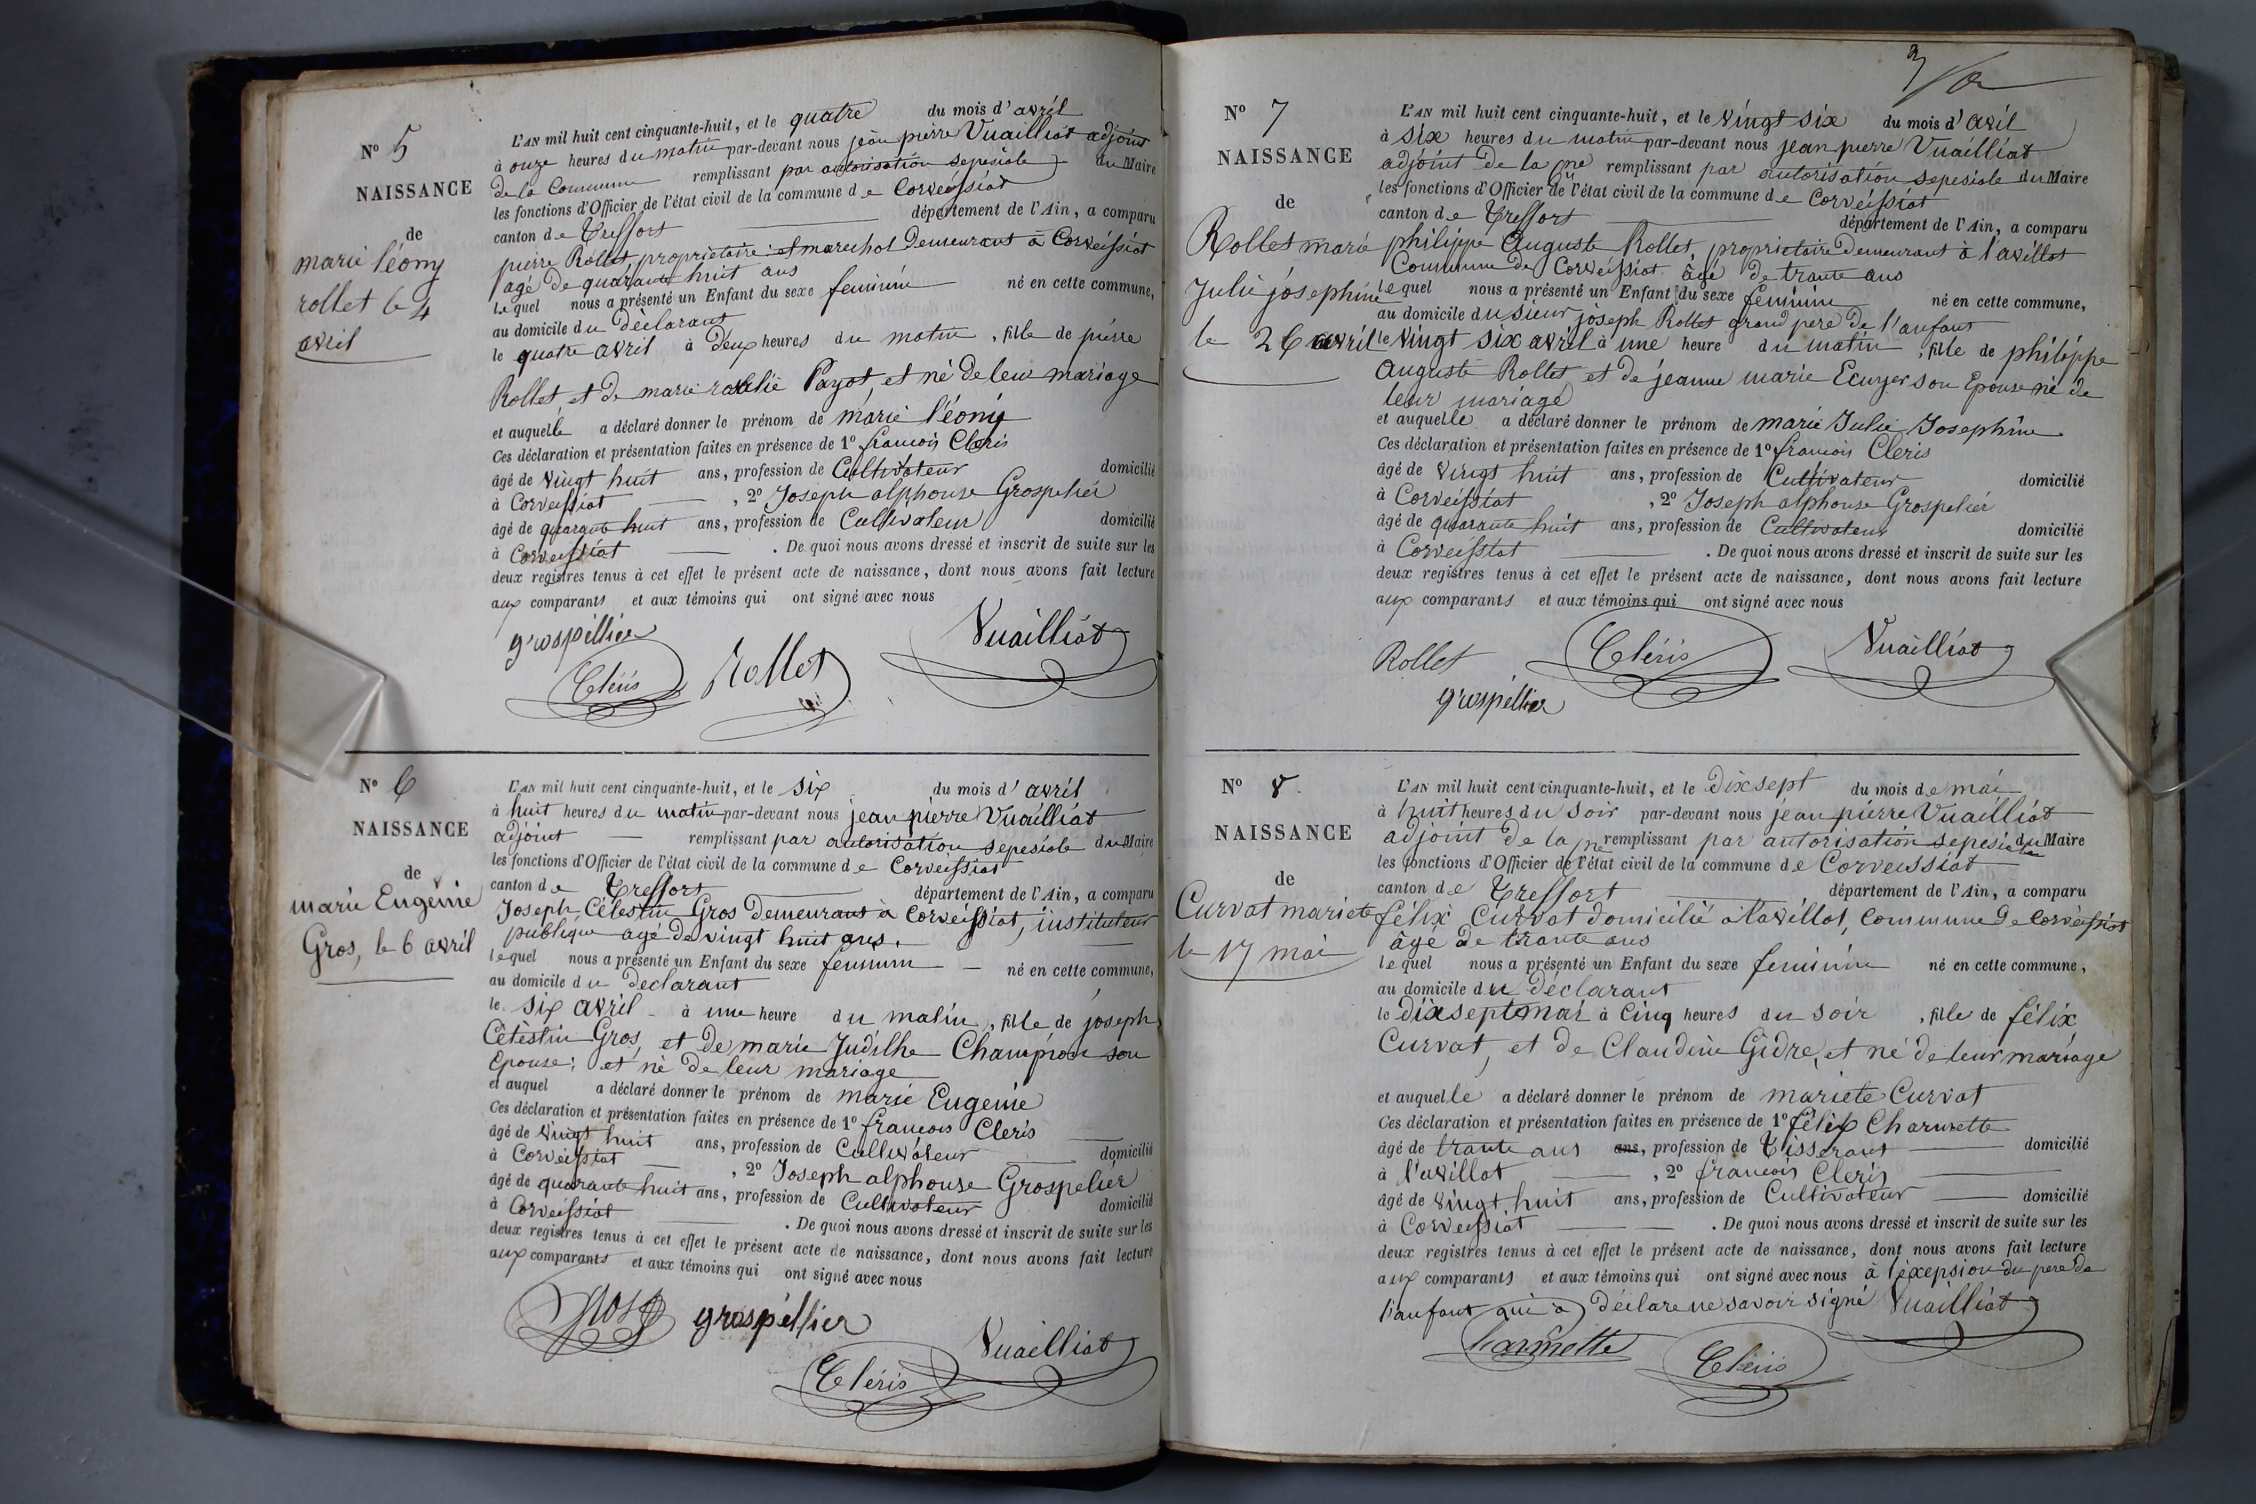 Nº 5
NAISSANCE
de
marie léony
rollet le 4
avril
L'AN mil huit cent cinquante-huit, et le quatre du mois d'avril
à onze heures du matin par-devant nous jean pierre Vuailliat adjoint
de la Commune remplissant par autorisation sepesiale du Maire
les fonctions d'Officier de l'état civil de la commune de Corveissiat
canton de Treffort département de l'Ain, a comparu
pierre Rollet, proprietaire et marechal Demeurant à Corveissiat
agé de quarante huit ans
lequel nous a présenté un Enfant du sexe feminin né en cette commune,
au domicile du Déclarant
le quatre avril à deux heures du matin, fille de pierre
Rollet et de marie rosalie Payot, et né de leur mariage
et auquelle a déclaré donner le prénom de marie léony
Ces déclaration et présentation faites en présence de 1º francois Cleris
âgé de vingt huit ans, profession de Cultivateur domicilié
à Corveissiat, 2º Joseph alphonse Grospelier
âgé de quarante huit ans, profession de Cultivateur domicilié
à Corveissiat. De quoi nous avons dressé et inscrit de suite sur les
deux registres tenus à cet effet le présent acte de naissance, dont nous avons fait lecture
aux comparants et aux témoins qui ont signé avec nous
grospellier Vuailliat
Cléris Rollet
Nº 6
NAISSANCE
de
marie Eugénie
Gros, le 6 avril
L'AN mil huit cent cinquante-huit, et le six du mois d'avril
à huit heures du matin par-devant nous jean pierre Vuailliat
adjoint remplissant par autorisation sepesiale du Maire
les fonctions d'Officier de l'état civil de la commune de Corveissiat
canton de Treffort département de l'Ain, a comparu
Joseph Célestin Gros Demeurant à Corveissiat, instituteur
publique agé de vingt huit ans.
lequel nous a présenté un Enfant du sexe feminin né en cette commune,
au domicile du Declarant
le six avril à une heure du matin, fille de joseph
Célèstin Gros, et de marie Judilhe Champion son
Epouse; et né de leur mariage
et auquel a déclaré donner le prénom de marie Eugenie
Ces déclaration et présentation faites en présence de 1º francois Cleris
âgé de vingt huit ans, profession de Cultivateur domicilié
à Corveissiat, 2º Joseph alphonse Grospelier
âgé de quarante huit ans, profession de Cultivateur domicilié
à Corveissiat. De quoi nous avons dressé et inscrit de suite sur les
deux registres tenus à cet effet le présent acte de naissance, dont nous avons fait lecture
aux comparants et aux témoins qui ont signé avec nous
Gros grospéllier Vuailliat
Cléris
3
Nº 7
NAISSANCE
de
Rollet marie
Julie joséphine
le 26 avril
L'AN mil huit cent cinquante-huit, et le vingt six du mois d'avril
à six heures du matin par-devant nous jean pierre Vuailliat
adjoint de la Cne remplissant par autorisation sepesiale du Maire
les fonctions d'Officier de l'état civil de la commune de Corveissiat
canton de Treffort département de l'Ain, a comparu
philippe Auguste Rollet, proprietaire Demeurant à l'avillat
Commune de Corveissiat âgé de trante ans
lequel nous a présenté un Enfant du sexe feminin né en cette commune,
au domicile du sieur joseph Rollet grand pere de l'anfant
le vingt six avril à une heure du matin, fille de philippe
Auguste Rollet et de jeanne marie Ecuyer son Epouse né de
leur mariage
et auquelle a déclaré donner le prénom de marie Julie Josephine
Ces déclaration et présentation faites en présence de 1º francois Cleris
âgé de vingt huit ans, profession de Cultivateur domicilié
à Corveissiat, 2º Joseph alphonse Grospelier
âgé de quarante huit ans, profession de Cultivateur domicilié
à Corveissiat. De quoi nous avons dressé et inscrit de suite sur les
deux registres tenus à cet effet le présent acte de naissance, dont nous avons fait lecture
aux comparants et aux témoins qui ont signé avec nous
Rollet Cléris Vuailliat
grospellier
Nº 8
NAISSANCE
de
Curvat mariete
le 17 mai
L'AN mil huit cent cinquante-huit, et le dix sept du mois de mai
à huit heures du soir par-devant nous jean pierre Vuailliat
adjoint de la Cne remplissant par autorisation sepesiale du Maire
les fonctions d'Officier de l'état civil de la commune de Corveissiat
canton de Treffort département de l'Ain, a comparu
félix Curvat domicilié à l'avillat, Commune de Corveissiat
âgé de trante ans
lequel nous a présenté un Enfant du sexe feminin né en cette commune,
au domicile du déclarant
le dix sept mai à cinq heures du soir, fille de félix
Curvat, et de Claudine Gidre, et né de leur mariage
et auquelle a déclaré donner le prénom de mariete Curvat
Ces déclaration et présentation faites en présence de 1º félix Charmette
âgé de trante ans ans, profession de Tisserant domicilié
à l'avillat, 2º francois Cleris
âgé de vingt huit ans, profession de Cultivateur domicilié
à Corveissiat. De quoi nous avons dressé et inscrit de suite sur les
deux registres tenus à cet effet le présent acte de naissance, dont nous avons fait lecture
aux comparants et aux témoins qui ont signé avec nous à l'éxepsion du pere de
l'anfant qui a déclare ne savoir signé Vuailliat
Charmette Cléris